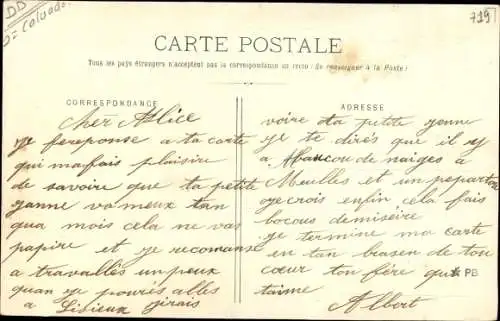 DD
D= Calvados
719
CARTE POSTALE
Tous les pays étrangers n'acceptent pas la correspondance au recto (Se renseigner à la Poste)
CORRESPONDANCE
Cher Allice
je fereponse a ta carte
qui ma fais plaisire
de savoire que ta petite
yanne va meux tan
qua mois cela ne vas
papire et je recomanse
a travallés un peux
quan je pourés alles
a Lisieux jirais
ADRESSE
voire ta petite yanne
je te dirés que il y
a Baucou de naiges à
Meulles et un
je crois enfin cela fais
bocous demisére
je termine ma carte
en tan brasen de ton
cœur ton fére que
taime
PB
Albert